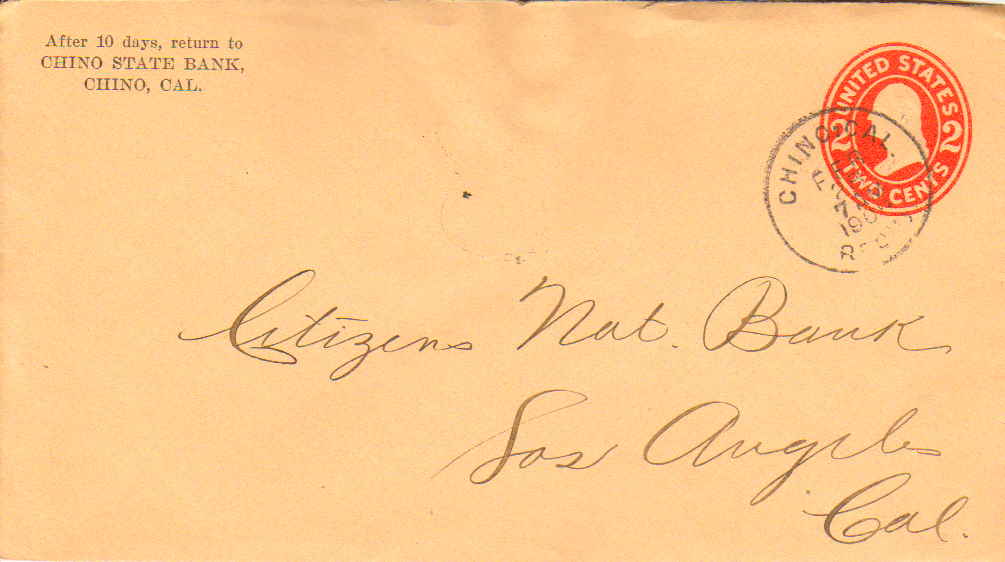 After 10 days, return to
CHINO STATE BANK,
CHINO, CAL.
UNITED STATES
2 2
TWO CENTS
CHINO, CAL.
Citizens Nat. Bank
Los Angeles
Cal.